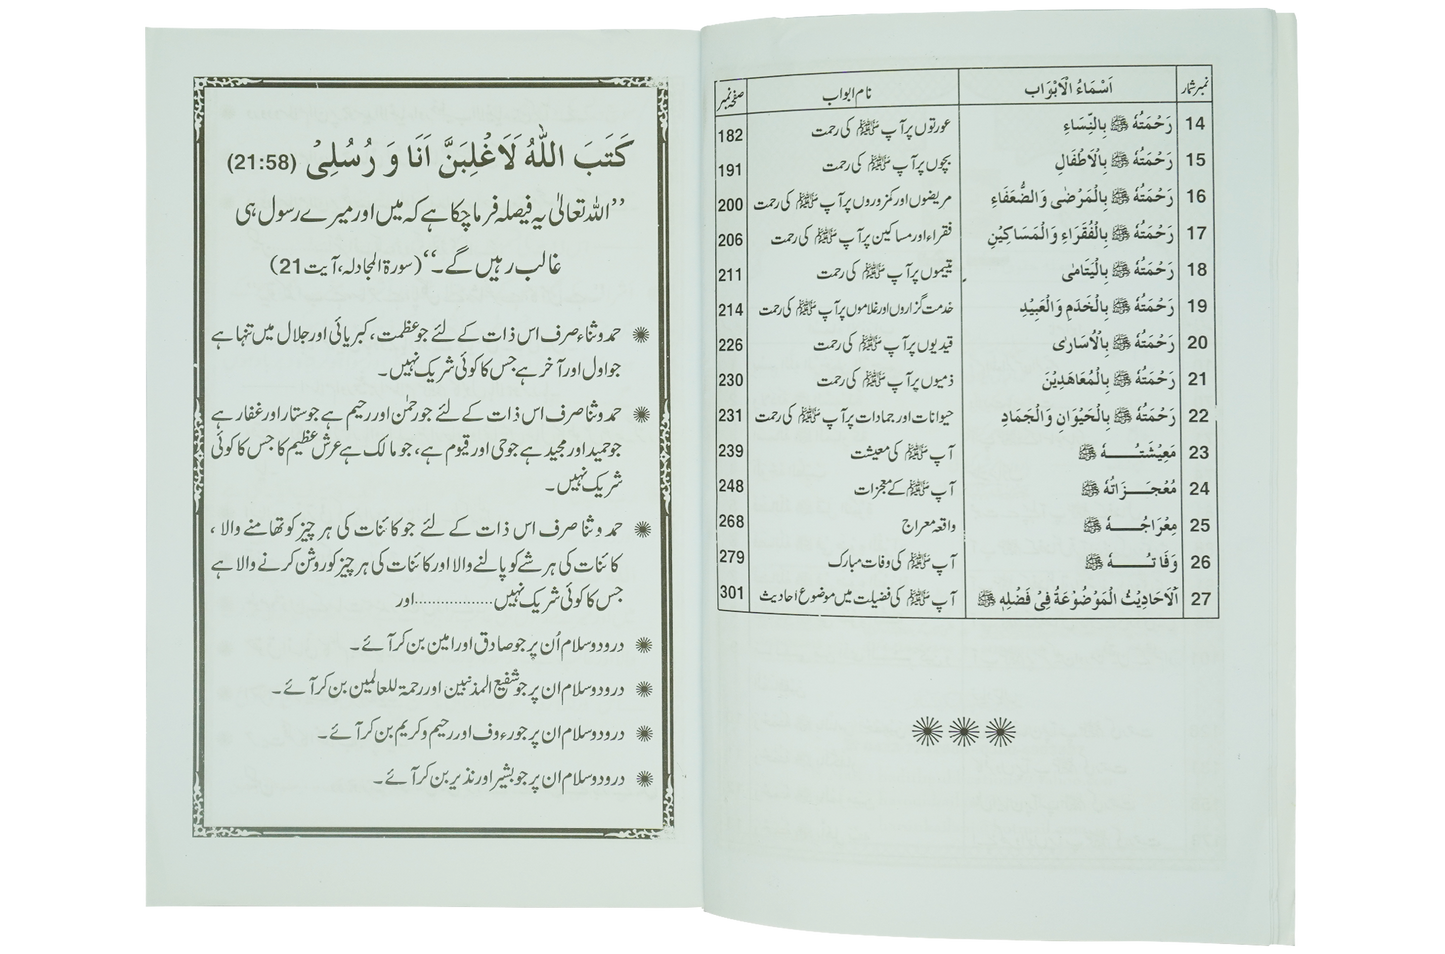 نمبر شمار اَسْمَاءُ الْاَبْوَاب نام ابواب صفحہ نمبر
14 رَحْمَتُهٗ ﷺ بِالنِّسَاءِ عورتوں پر آپ ﷺ کی رحمت 182
15 رَحْمَتُهٗ ﷺ بِالْاَطْفَالِ بچوں پر آپ ﷺ کی رحمت 191
16 رَحْمَتُهٗ ﷺ بِالْمَرْضٰى وَالضُّعَفَاءِ مریضوں اور کمزوروں پر آپ ﷺ کی رحمت 200
17 رَحْمَتُهٗ ﷺ بِالْفُقَرَاءِ وَالْمَسَاكِيْنِ فقراء اور مساکین پر آپ ﷺ کی رحمت 206
18 رَحْمَتُهٗ ﷺ بِالْيَتَامٰى یتیموں پر آپ ﷺ کی رحمت 211
19 رَحْمَتُهٗ ﷺ بِالْخَدَمِ وَالْعَبِيْدِ خدمت گزاروں اور غلاموں پر آپ ﷺ کی رحمت 214
20 رَحْمَتُهٗ ﷺ بِالْاُسَارٰى قیدیوں پر آپ ﷺ کی رحمت 226
21 رَحْمَتُهٗ ﷺ بِالْمُعَاهَدِيْنَ ذمیوں پر آپ ﷺ کی رحمت 230
22 رَحْمَتُهٗ ﷺ بِالْحَيْوَانِ وَالْجَمَادِ حیوانات اور جمادات پر آپ ﷺ کی رحمت 231
23 مَعِيْشَتُـــــــهٗ ﷺ آپ ﷺ کی معیشت 239
24 مُعْجِـــزَاتُهٗ ﷺ آپ ﷺ کے معجزات 248
25 مِعْرَاجُـــــــهٗ ﷺ واقعہ معراج 268
26 وَفَاتُـــــــهٗ ﷺ آپ ﷺ کی وفات مبارک 279
27 اَلْاَحَادِيْثُ الْمَوْضُوْعَةُ فِيْ فَضْلِهٖ ﷺ آپ ﷺ کی فضیلت میں موضوع احادیث 301
كَتَبَ اللّٰهُ لَاَغْلِبَنَّ اَنَا وَ رُسُلِيْ (21:58)
’’اللہ تعالیٰ یہ فیصلہ فرما چکا ہے کہ میں اور میرے رسول ہی
غالب رہیں گے۔‘‘ (سورۃ المجادلہ، آیت 21)
حمد و ثناء صرف اس ذات کے لئے جو عظمت، کبریائی اور جلال میں تنہا ہے
جو اول اور آخر ہے جس کا کوئی شریک نہیں۔
حمد و ثنا صرف اس ذات کے لئے جو رحمٰن اور رحیم ہے جو ستار اور غفار ہے
جو حمید اور مجید ہے جو حی اور قیوم ہے، جو مالک ہے عرش عظیم کا جس کا کوئی
شریک نہیں۔
حمد و ثنا صرف اس ذات کے لئے جو کائنات کی ہر چیز کو تھامنے والا،
کائنات کی ہر شے کو پالنے والا اور کائنات کی ہر چیز کو روشن کرنے والا ہے
جس کا کوئی شریک نہیں..................اور
درود و سلام اُن پر جو صادق اور امین بن کر آئے۔
درود و سلام ان پر جو شفیع المذنبین اور رحمۃ للعالمین بن کر آئے۔
درود و سلام ان پر جو رءوف اور رحیم و کریم بن کر آئے۔
درود و سلام ان پر جو بشیر اور نذیر بن کر آئے۔